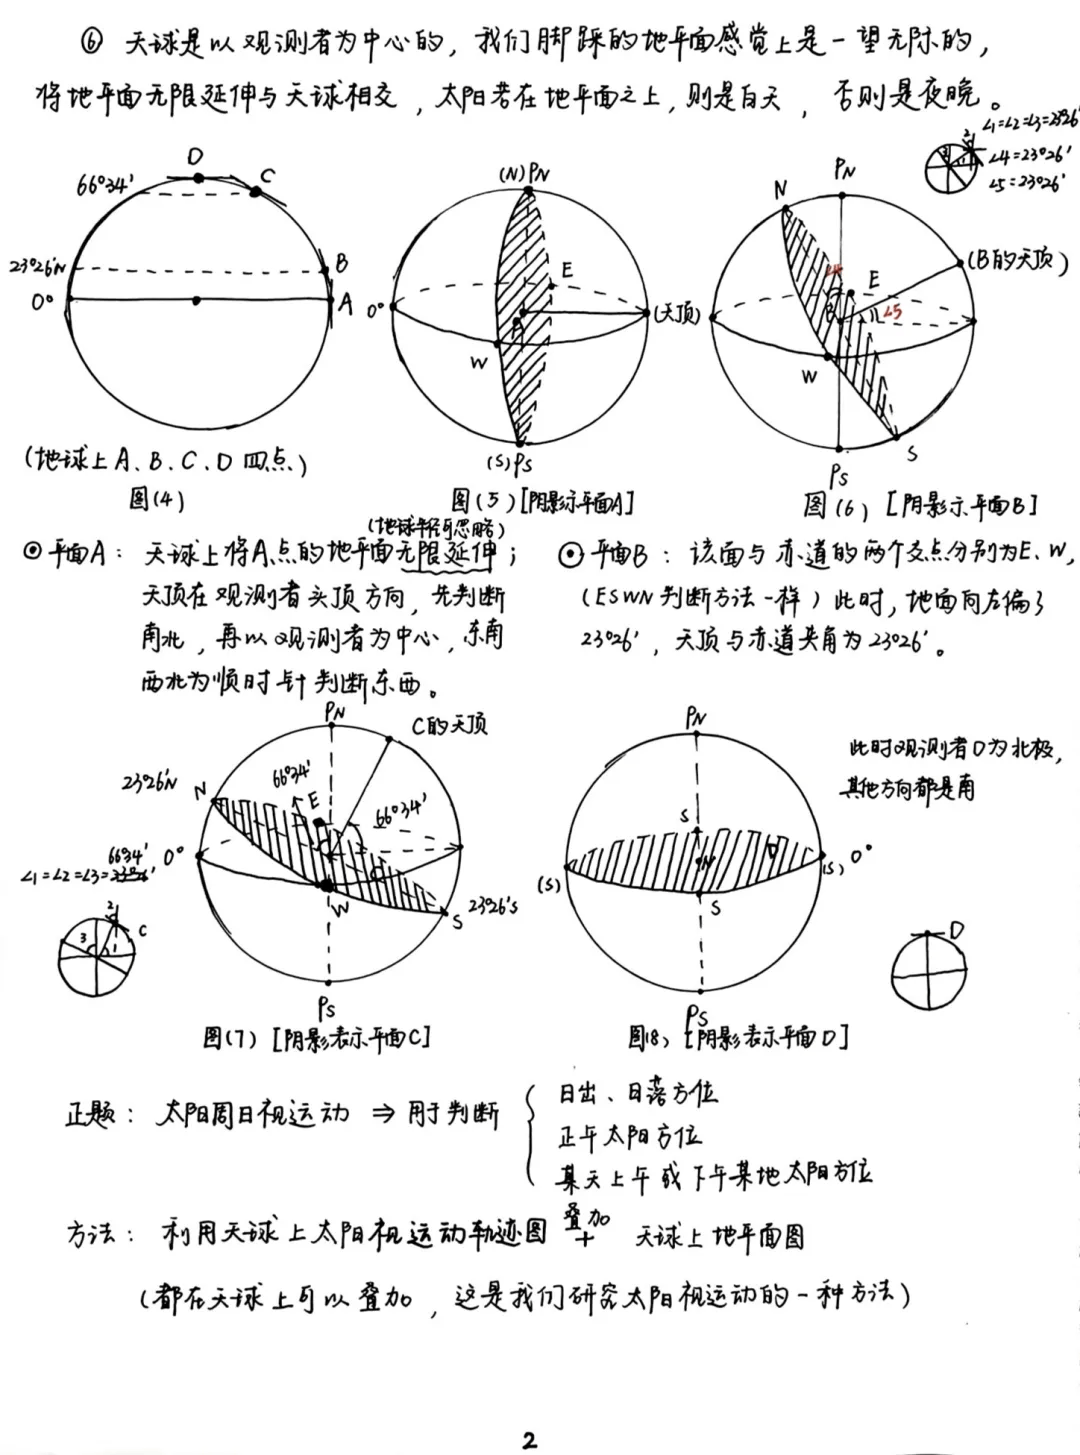 ⑥ 天球是以观测者为中心的，我们脚踩的地平面感觉上是一望无际的，
将地平面无限延伸与天球相交，太阳若在地平面之上，则是白天，否则是夜晚。
∠1=∠2=∠3=23°26′
∠4=23°26′
∠5=23°26′
2
3
1
D
C
66°34′
23°26′N
B
0°
A
(地球上A、B、C、D四点)
图(4)
(N)PN
E
0°
A
(天顶)
W
(S)PS
图(5)[阴影示平面A]
N
PN
(B的天顶)
∠4
E
B
∠5
W
S
PS
图(6) [阴影示平面B]
(地球半径可忽略)
⊙ 平面A： 天球上将A点的地平面无限延伸；
天顶在观测者头顶方向，先判断
南北，再以观测者为中心，东南
西北为顺时针判断东西。
⊙ 平面B： 该面与赤道的两个交点分别为E、W，
(ESWN判断方法一样) 此时，地面向左偏了
23°26′，天顶与赤道夹角为23°26′。
PN
C的天顶
23°26′N
N
66°34′
E
66°34′
0°
C
W
S
23°26′S
PS
66°34′
∠1=∠2=∠3=23°26′
2
C
3
1
图(7) [阴影表示平面C]
PN
此时观测者D为北极，
其他方向都是南
S
D
N
(S)
(S)
0°
S
PS
D
图(8) [阴影表示平面D]
正题： 太阳周日视运动 ⇒ 用于判断
日出、日落方位
正午太阳方位
某天上午或下午某地太阳方位
方法： 利用天球上太阳视运动轨迹图 叠加 + 天球上地平面图
(都在天球上可以叠加，这是我们研究太阳视运动的一种方法)
2